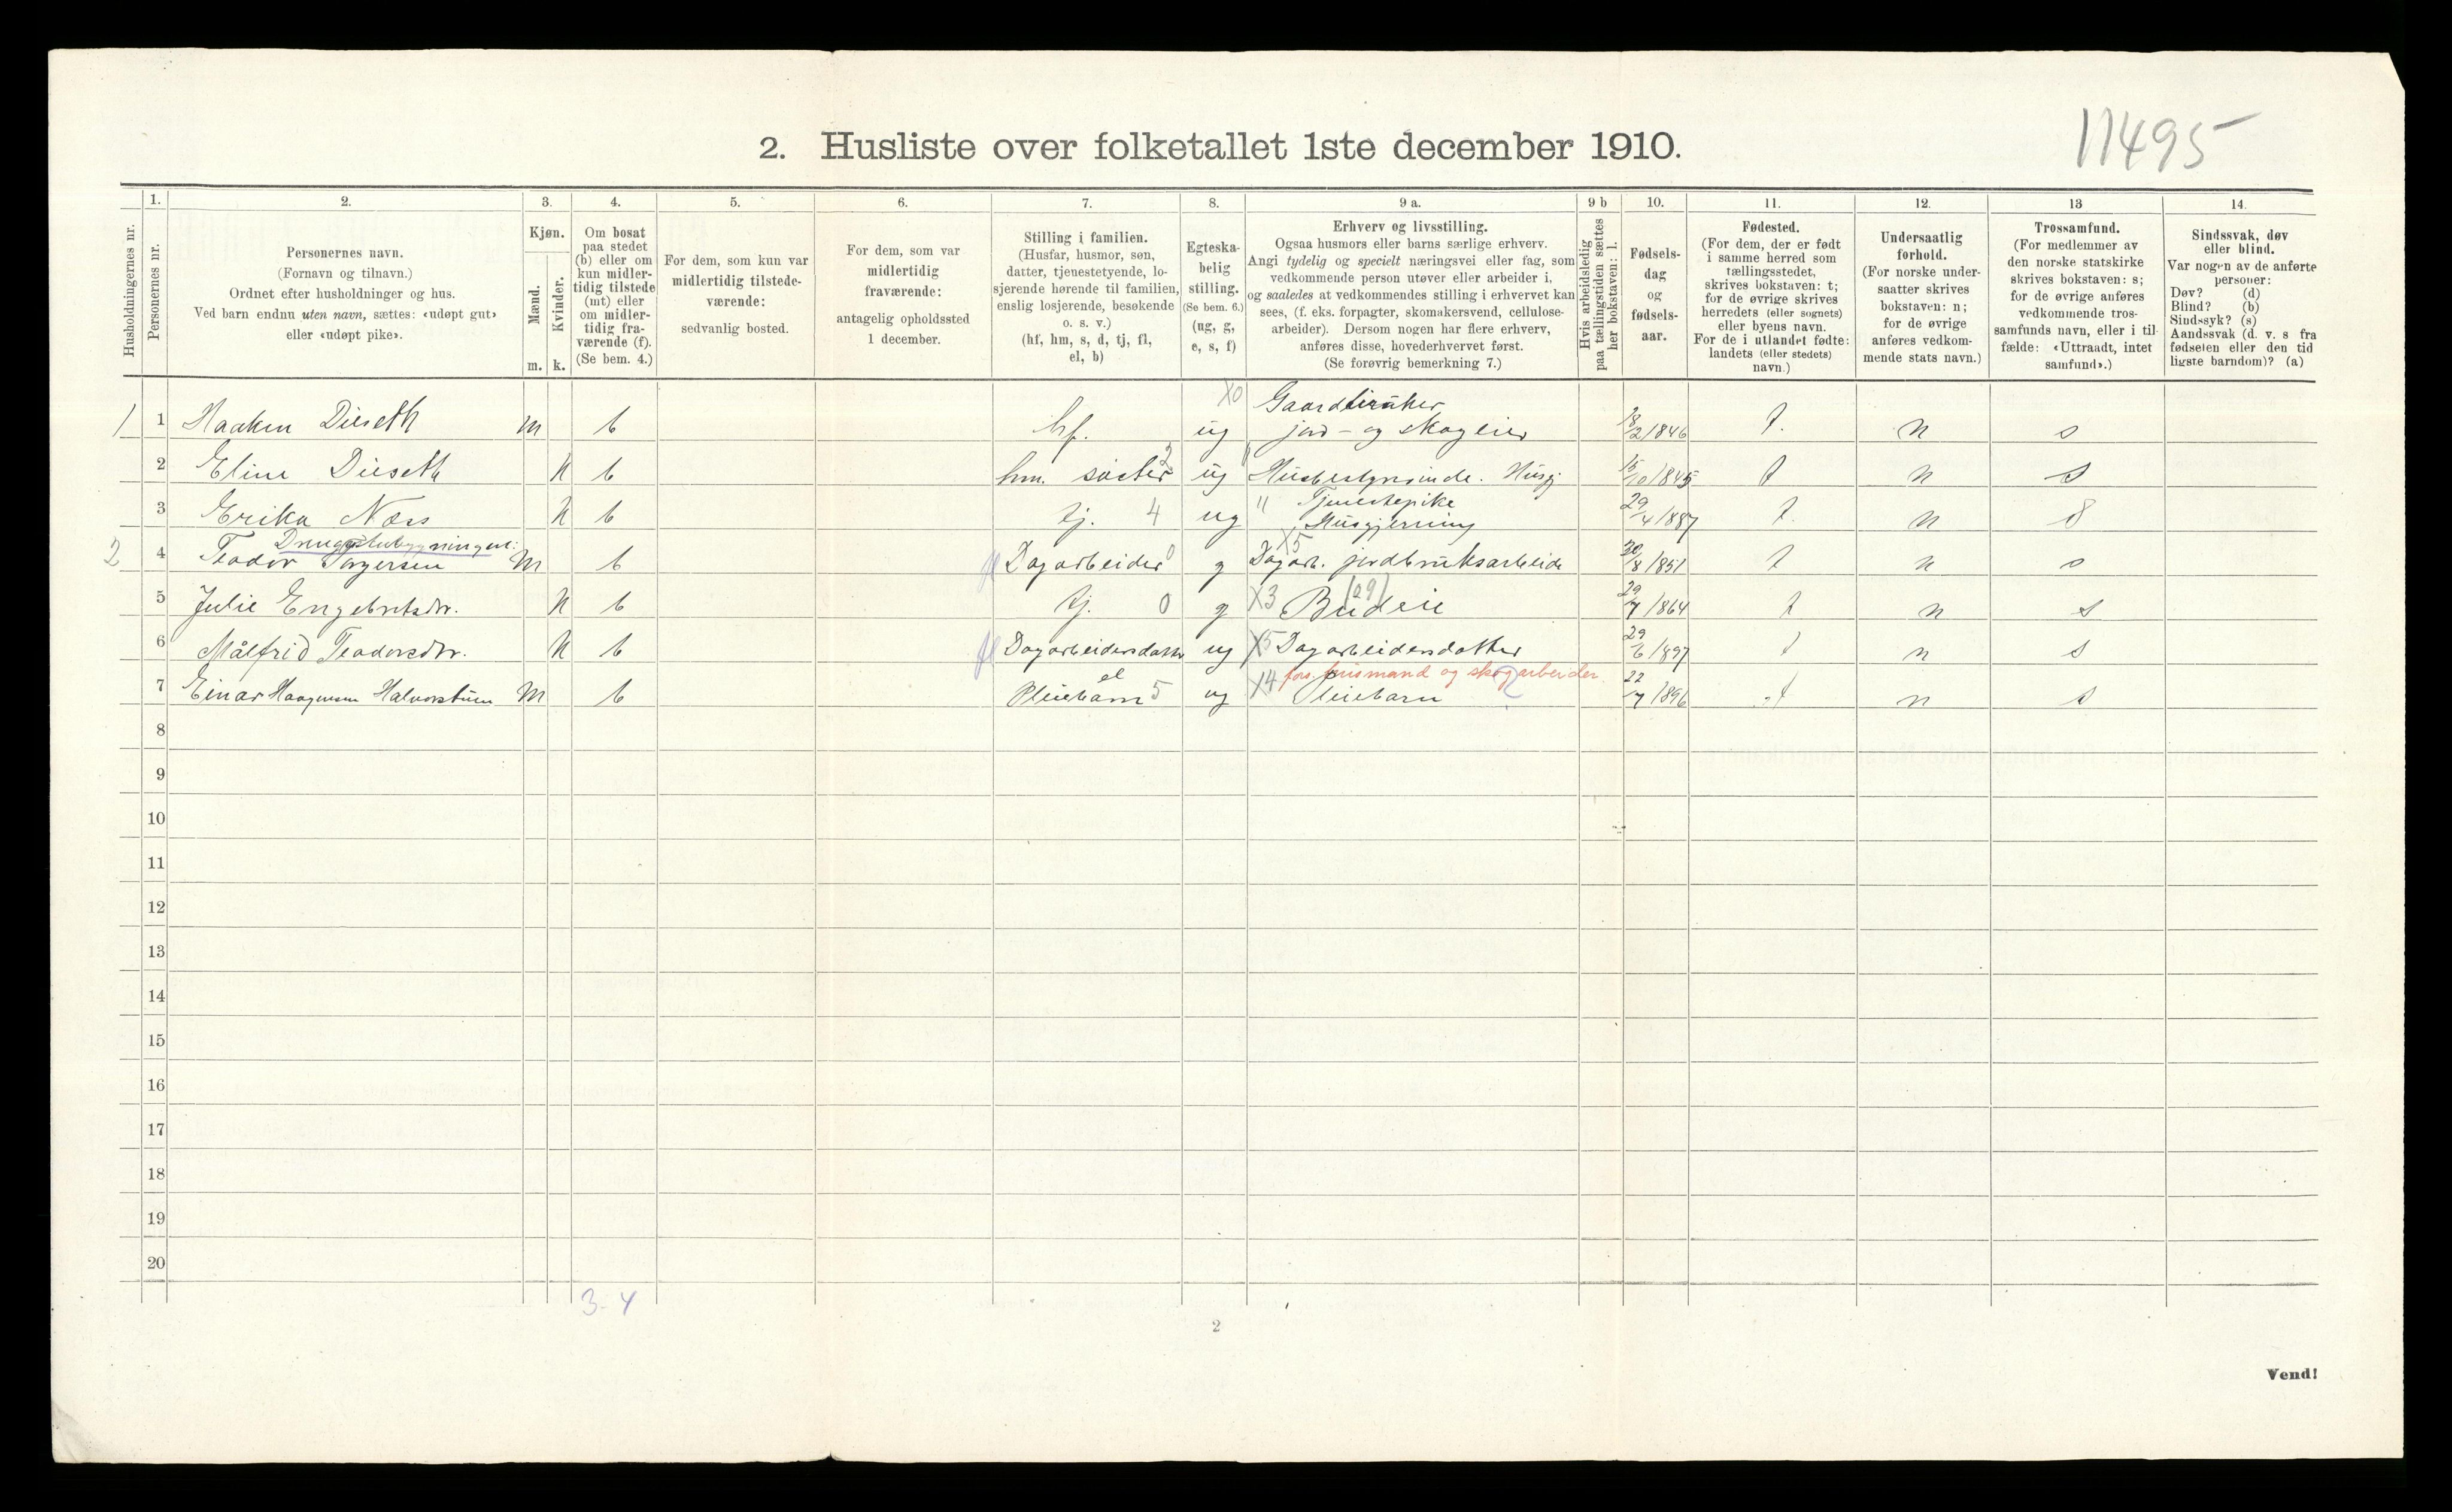 11495
2. Husliste over folketallet 1ste december 1910.
Husholdningernes nr.
1.
Personernes nr.
2.
Personernes navn.
(Fornavn og tilnavn.)
Ordnet efter husholdninger og hus.
Ved barn endnu uten navn, sættes: «udøpt gut»
eller «udøpt pike».
3.
Kjøn.
Mænd.
Kvinder.
m. k.
4.
Om bosat
paa stedet
(b) eller om
kun midler-
tidig tilstede
(mt) eller
om midler-
tidig fra-
værende (f).
(Se bem. 4.)
5.
For dem, som kun var
midlertidig tilstede-
værende:
sedvanlig bosted.
6.
For dem, som var
midlertidig
fraværende:
antagelig opholdssted
1 december.
7.
Stilling i familien.
(Husfar, husmor, søn,
datter, tjenestetyende, lo-
sjerende hørende til familien,
enslig losjerende, besøkende
o. s. v.)
(hf, hm, s, d, tj, fl,
el, b)
8.
Egteska-
belig
stilling.
(Se bem. 6.)
(ug, g,
e, s, f)
9 a.
Erhverv og livsstilling.
Ogsaa husmors eller barns særlige erhverv.
Angi tydelig og specielt næringsvei eller fag, som
vedkommende person utøver eller arbeider i,
og saaledes at vedkommendes stilling i erhvervet kan
sees, (f. eks. forpagter, skomakersvend, cellulose-
arbeider). Dersom nogen har flere erhverv,
anføres disse, hovederhvervet først.
(Se forøvrig bemerkning 7.)
9 b
Hvis arbeidsledig
paa tællingstiden sættes
her bokstaven: l.
10.
Fødsels-
dag
og
fødsels-
aar.
11.
Fødested.
(For dem, der er født
i samme herred som
tællingsstedet,
skrives bokstaven: t;
for de øvrige skrives
herredets (eller sognets)
eller byens navn.
For de i utlandet fødte:
landets (eller stedets)
navn.)
12.
Undersaatlig
forhold.
(For norske under-
saatter skrives
bokstaven: n;
for de øvrige
anføres vedkom-
mende stats navn.)
13
Trossamfund.
(For medlemmer av
den norske statskirke
skrives bokstaven: s;
for de øvrige anføres
vedkommende tros-
samfunds navn, eller i til-
fælde: «Uttraadt, intet
samfund».)
14.
Sindssvak, døv
eller blind.
Var nogen av de anførte
personer:
Døv? (d)
Blind? (b)
Sindssyk? (s)
Aandssvak (d. v. s fra
fødselen eller den tid
ligste barndom)? (a)
X0 Gaardbruker
1 1 Haaken Diiseth m b hf. ug jord- og skogeier 18/2 1846 t. n s
2 Eline Diiseth k b hm. søster 3 ug " Husbestyrerinde. Husgj 15/10 1845 t n s
" Tjenestepike
3 Erika Næss k b tj. 4 ug Husgjerning 29/4 1887 t. n s
X5
2 4 Teodor Torgersen m b fl Dagarbeider 0 g Dagarb. jordbruksarbeide 30/8 1851 t n s
5 Julie Engebretsdtr. k b tj. 0 g X3 Budeie (09) 29/7 1864 t n s
6 Målfrid Teodorsdtr. k b fl Dagarbeidersdatter ug X5 Dagarbeidersdatter 29/6 1897 t n s
el fors. husmand og skogarbeider.
7 Einar Haagensen Halvorstuen m b Pleiebarn 5 ug X4 Pleiebarn 22/7 1896 t n s
8
9
10
11
12
13
14
15
16
17
18
19
20
3-4
2
Vend!